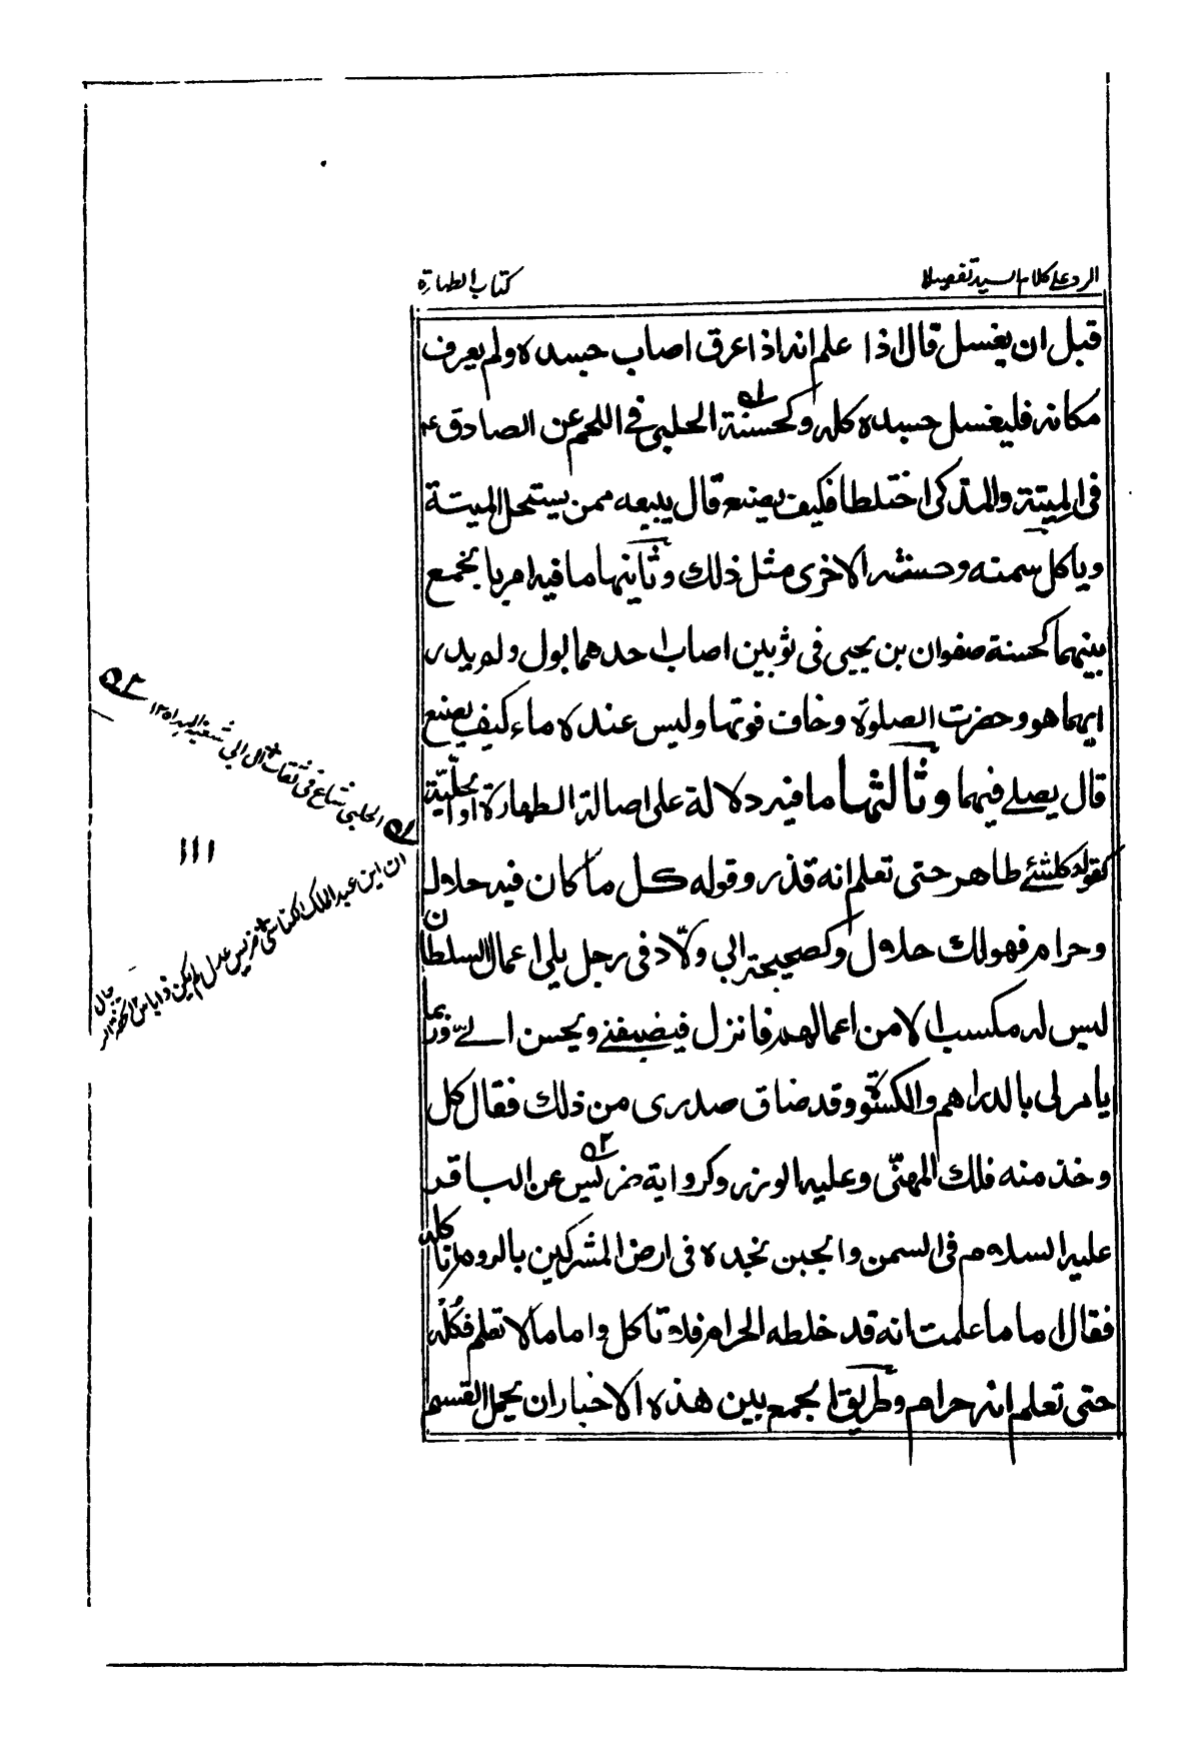 الرد على كلام السيد تفصيلا
كتاب الطهارة
قبل ان يغسل قال اذا علم انه اذا عرق اصاب جسده ولم يعرف
مكانه فليغسل جسده كله وكحسنة الحلبي في اللحم عن الصادق ع
في الميتة والمذكى اختلطا فكيف يصنع قال يبيعه ممن يستحل الميتة
وياكل ثمنه وحسنته الاخرى مثل ذلك وثانيها ما فيه امر بالجمع
بينهما كحسنة صفوان بن يحيى في ثوبين اصاب احدهما بول ولم يدر
ايهما هو وحضرت الصلوة وخاف فوتها وليس عنده ماء كيف يصنع
قال يصلي فيهما وثالثها ما فيه دلالة على اصالة الطهارة او الحلّيّة
كقوله كلشئ طاهر حتى تعلم انه قذر وقوله كل ما كان فيه حلال
وحرام فهو لك حلال وكصحيحة ابي ولّاد في رجل يلي اعمال السلطان
ليس له مكسب الا من اعمالهم فانزل فيضيفني ويحسن اليّ وربما
يامر لي بالدراهم والكسوة وقد ضاق صدري من ذلك فقال كل
وخذ منه فلك المهنّى وعليه الوزر وكرواية ضريس عن الباقر
عليه السلام في السمن والجبن نجده في ارض المشركين بالروم اناكله
فقال اما ما علمت انه قد خلطه الحرام فلا تاكل واما ما لا تعلم فكُلْه
حتى تعلم انه حرام وطريق الجمع بين هذه الاخبار ان يحمل القسم
الحلبي شاع في ثقات آل ابي شعبة
١١١
ان ابن عبد الملك الكناسي ضريس عدل لم يكن ذا